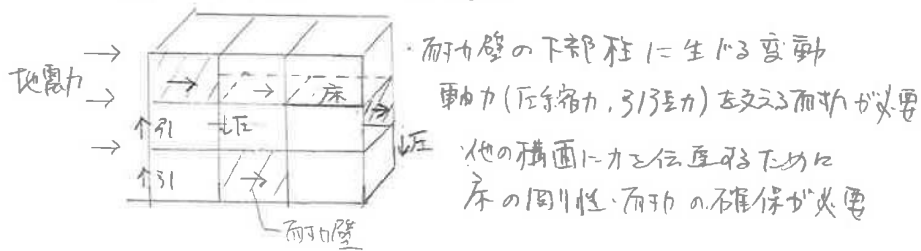 地震力
床
引
圧
圧
引
耐力壁
・耐力壁の下部柱に生じる変動
軸力(圧縮力、引張力)を支える耐力が必要
・他の構面に力を伝達するために
床の剛性・耐力の確保が必要